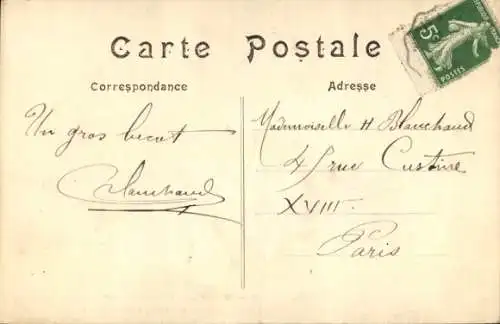 Carte Postale
Correspondance
Adresse
5c
POSTES
Un gros becot
Blanchaud
Mademoiselle H Blanchaud
4 rue Custine
XVIII.
Paris